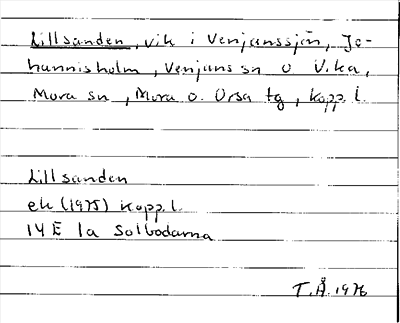 Lillsanden, vik i Venjanssjön, Jo-
hannisholm, Venjans sn o Vika,
Mora sn, Mora o. Orsa tg, Kopp. l.
Lillsanden
ek (1975) Kopp. l.
14 E 1a Solbodarna
T.Å. 1976